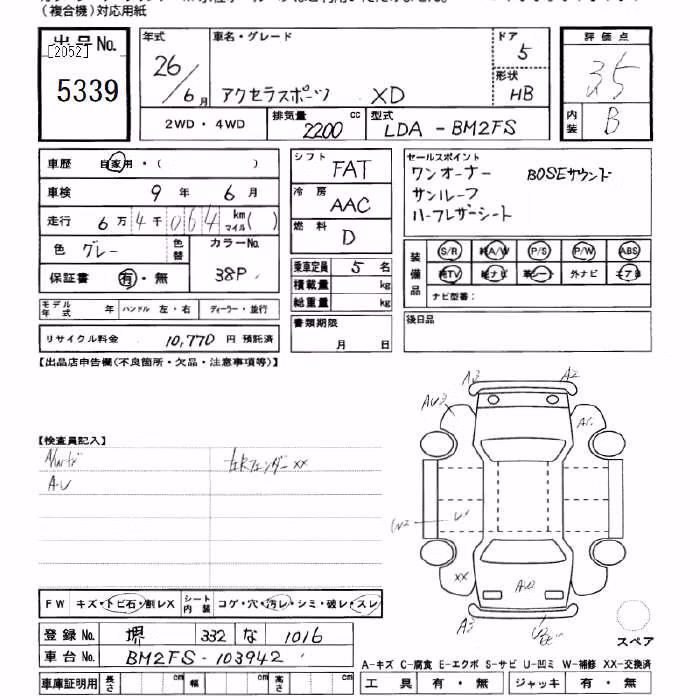 (複合機)対応用紙
出品 No.
[2052]
5339
年式
26/6月
車名・グレード
アクセラスポーツ XD
ドア
5
形状
HB
評価点
3.5
内装
B
2WD・4WD
排気量
2200 cc
型式
LDA-BM2FS
車歴 自家用・( )
車検 9年 6月
走行 6万4千064 km マイル( )
色 グレー
色替
カラーNo.
38P
保証書 有・無
シフト FAT
冷房 AAC
燃料 D
乗車定員 5名
積載量 kg
総重量 kg
書類期限
月 日
セールスポイント
ワンオーナー BOSEサウンド
サンルーフ
ハーフレザーシート
装備品
S/R 純A/W P/S P/W ABS
純TV 純ナビ 革シート 外ナビ エアB
ナビ型番:
後日品
モデル年式 年 ハンドル 左・右 ディーラー・並行
リサイクル料金 10,770 円 預託済
【出品店申告欄(不良箇所・欠品・注意事項等)】
【検査員記入】
A/Wキズ 左Rフェンダーxx
A・U
A3 A2
AU3
AU
xx
A3
FW キズ・トビ石・割レX シート内装 コゲ・穴・汚レ・シミ・破レ・スレ
登録 No. 堺 332 な 1016
車台 No. BM2FS-103942
スペア
A-キズ C-腐食 E-エクボ S-サビ U-凹ミ W-補修 XX-交換済
車庫証明用 長さ cm 幅 cm 高さ cm
工具 有・無 ジャッキ 有・無